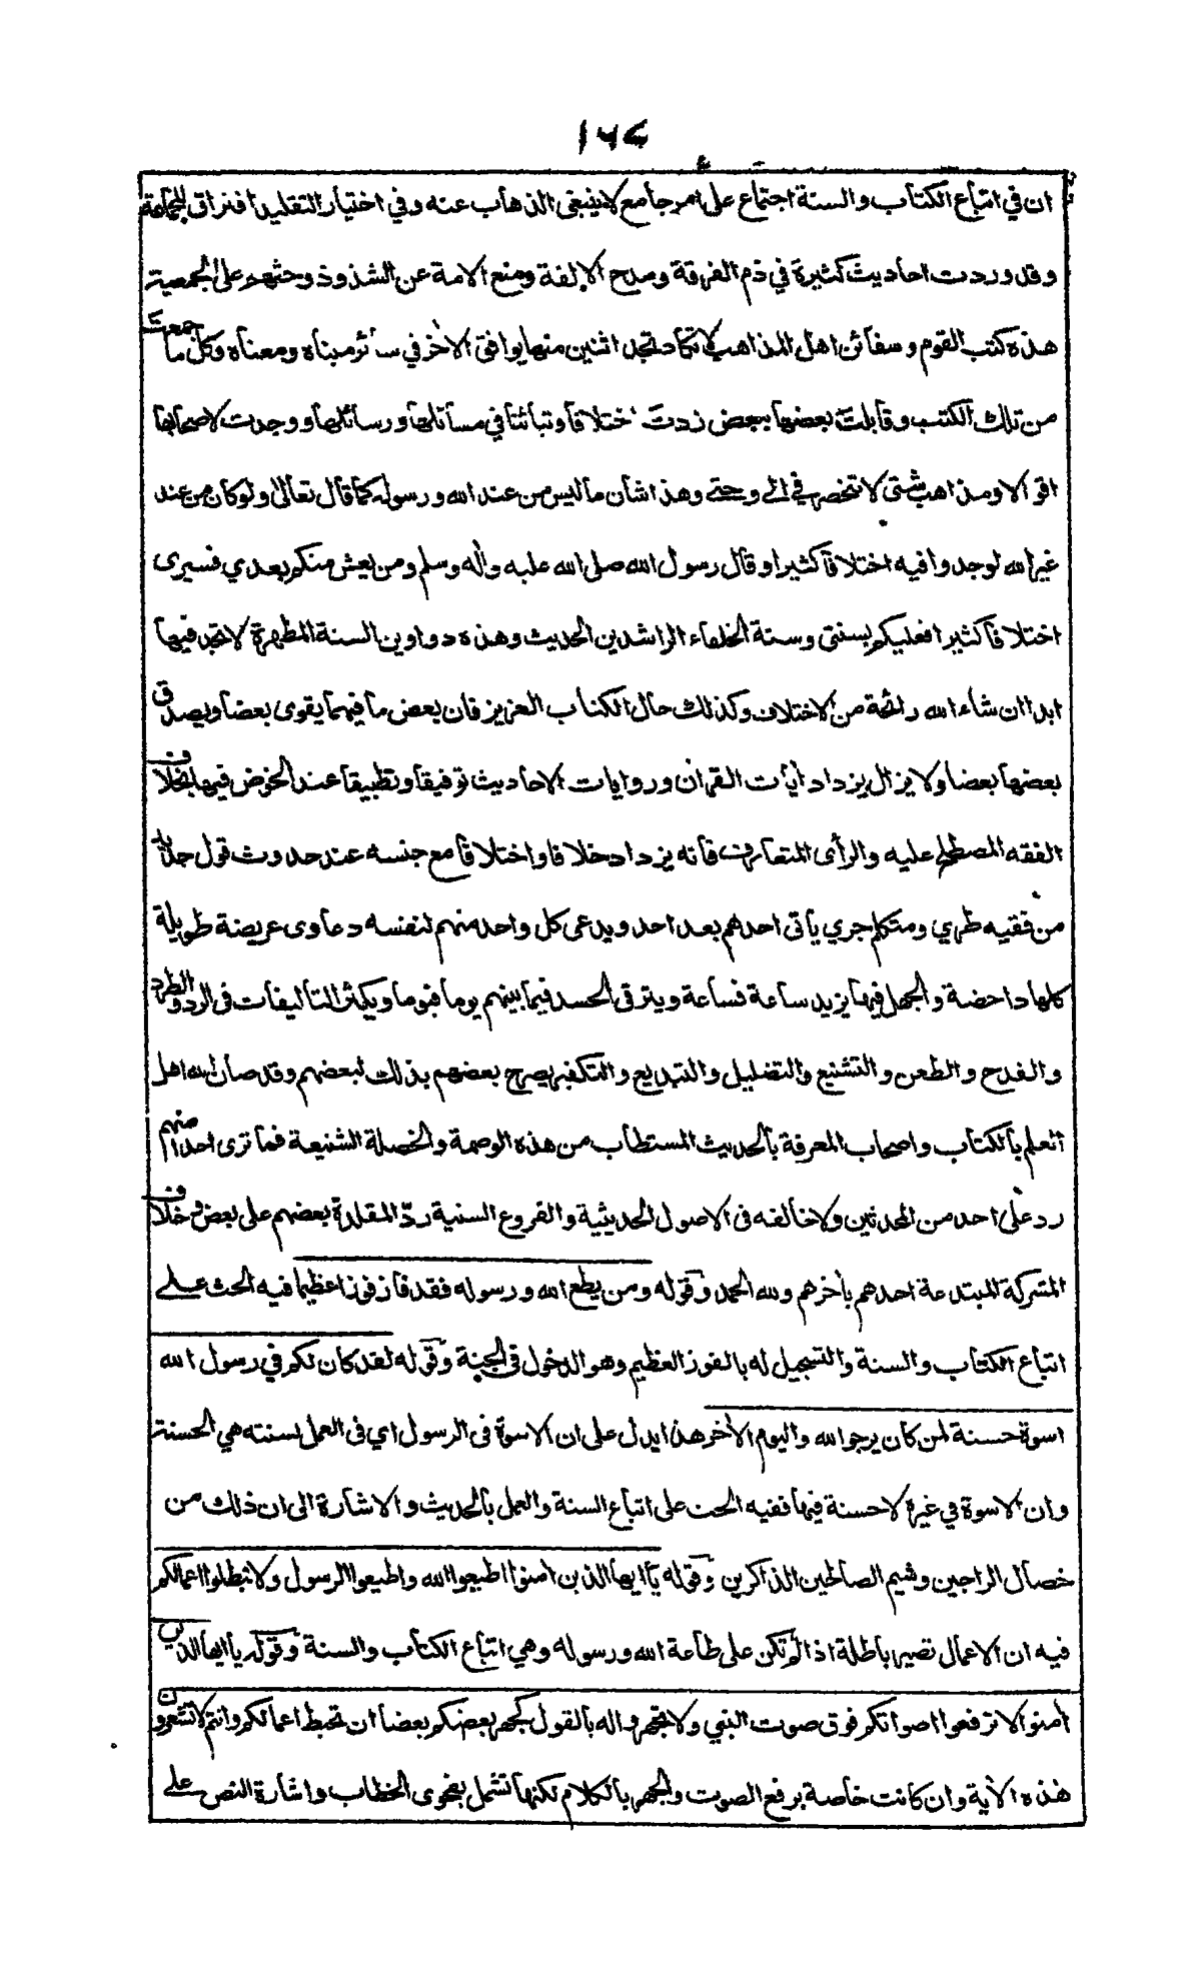 ١٦٤
ان في اتباع الكتاب والسنة اجتماع على امر جامع لا ينبغي الذهاب عنه وفي اختيار التقليد افتراق الجماعة
وقد وردت احاديث كثيرة في ذم الفرقة ومدح الالفة ومنع الامة عن الشذوذ وحثهم على الجمعية
هذه كتب القوم وسفائن اهل المذاهب لا تكاد تجد اثنين منها يوافق الآخر في سائر مبناه ومعناه وكل ما جمعت
من تلك الكتب وقابلت بعضها ببعض زدت اختلافا وتبائنا في مسائلها ورسائلها ووجدت لاصحابها
اقوالا ومذاهب شتى لا تنحصر في الى وحتى وهذا شأن ما ليس من عند الله ورسوله كما قال تعالى ولو كان من عند
غير الله لوجدوا فيه اختلافا كثيرا وقال رسول الله صلى الله عليه واله وسلم ومن يعش منكم بعدي فسيرى
اختلافا كثيرا فعليكم بسنتى وسنة الخلفاء الراشدين الحديث وهذه دواوين السنة المطهرة لا تجد فيها
ابدا ان شاء الله رائحة من الاختلاف وكذلك حال الكتاب العزيز فان بعض ما فيهما يقوى بعضا ويصدق
بعضها بعضا ولا يزال يزداد أيات القرأن وروايات الاحاديث توفيقا وتطبيقا عند الخوض فيها بخلاف
الفقه المصطلح عليه والرأى المتعارف فانه يزداد خلافا واختلافا مع جنسه عند حدوث قول جديد
من فقيه طري ومتكلم جري يأتى احدهم بعد احد ويدعى كل واحد منهم لنفسه دعاوى عريضة طويلة
كلها داحضة والجهل فيها يزيد ساعة فساعة ويترقى الحسد فيما بينهم يوما فيوما ويكثر التأليفات فى الرد والطرد
والقدح والطعن والتشنيع والتضليل والتبديع والتكفير يصرح بعضهم بذلك لبعضهم وقد صان الله اهل
العلم بالكتاب واصحاب المعرفة بالحديث المستطاب من هذه الوصمة والخصلة الشنيعة فما ترى احدا منهم
رد على احد من المحدثين ولا خالفه فى الاصول الحديثية والفروع السنية ردّ المقلدة بعضهم على بعض وخلاف
المشركة المبتدعة احدهم بأخرهم ولله الحمد وقوله ومن يطع الله ورسوله فقد فاز فوزا عظيما فيه الحث على
اتباع الكتاب والسنة والتسجيل له بالفوز العظيم وهو الدخول فى الجنة وقوله لقد كان لكم في رسول الله
اسوة حسنة لمن كان يرجو الله واليوم الأخر هذا يدل على ان الاسوة فى الرسول اي فى العمل بسنته هي الحسنة
وان الاسوة في غيره لا حسنة فيها ففيه الحث على اتباع السنة والعمل بالحديث والاشارة الى ان ذلك من
خصال الراجين وشيم الصالحين الذاكرين وقوله يأايها الذين امنوا اطيعوا الله واطيعوا الرسول ولا تبطلوا اعمالكم
فيه ان الاعمال تصير باطلة اذا لم تكن على طاعة الله ورسوله وهي اتباع الكتاب والسنة وقوله يأايها الذين
أمنوا لا ترفعوا اصواتكم فوق صوت النبي ولا تجهروا له بالقول كجهر بعضكم بعضا ان تحبط اعمالكم وانتم لا تشعرون
هذه الأية وان كانت خاصة برفع الصوت والجهر بالكلام لكنها تشمل بفحوى الخطاب واشارة النص على